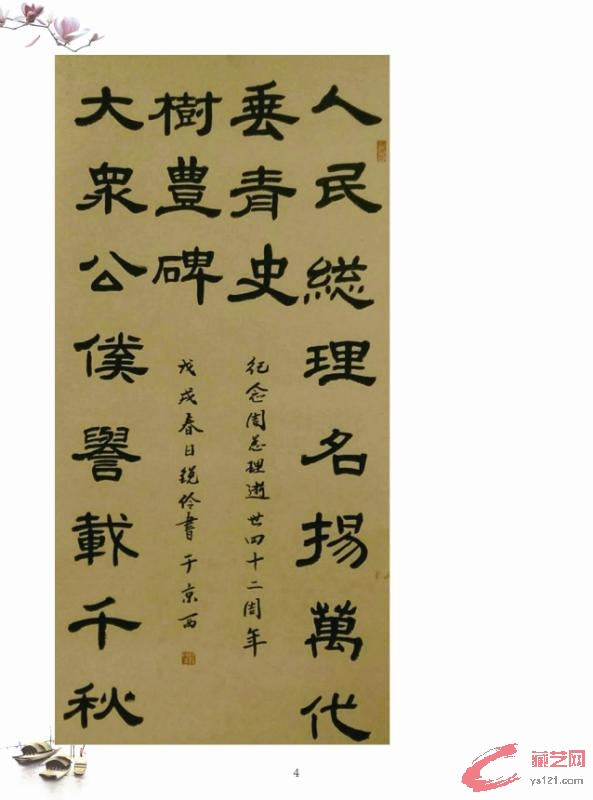 人民總理名揚萬代
垂青史
紀念周总理逝世四十二周年
樹豐碑
戊戌春日锐伶書于京西
大衆公僕譽載千秋
4
藏艺网
ys121.com